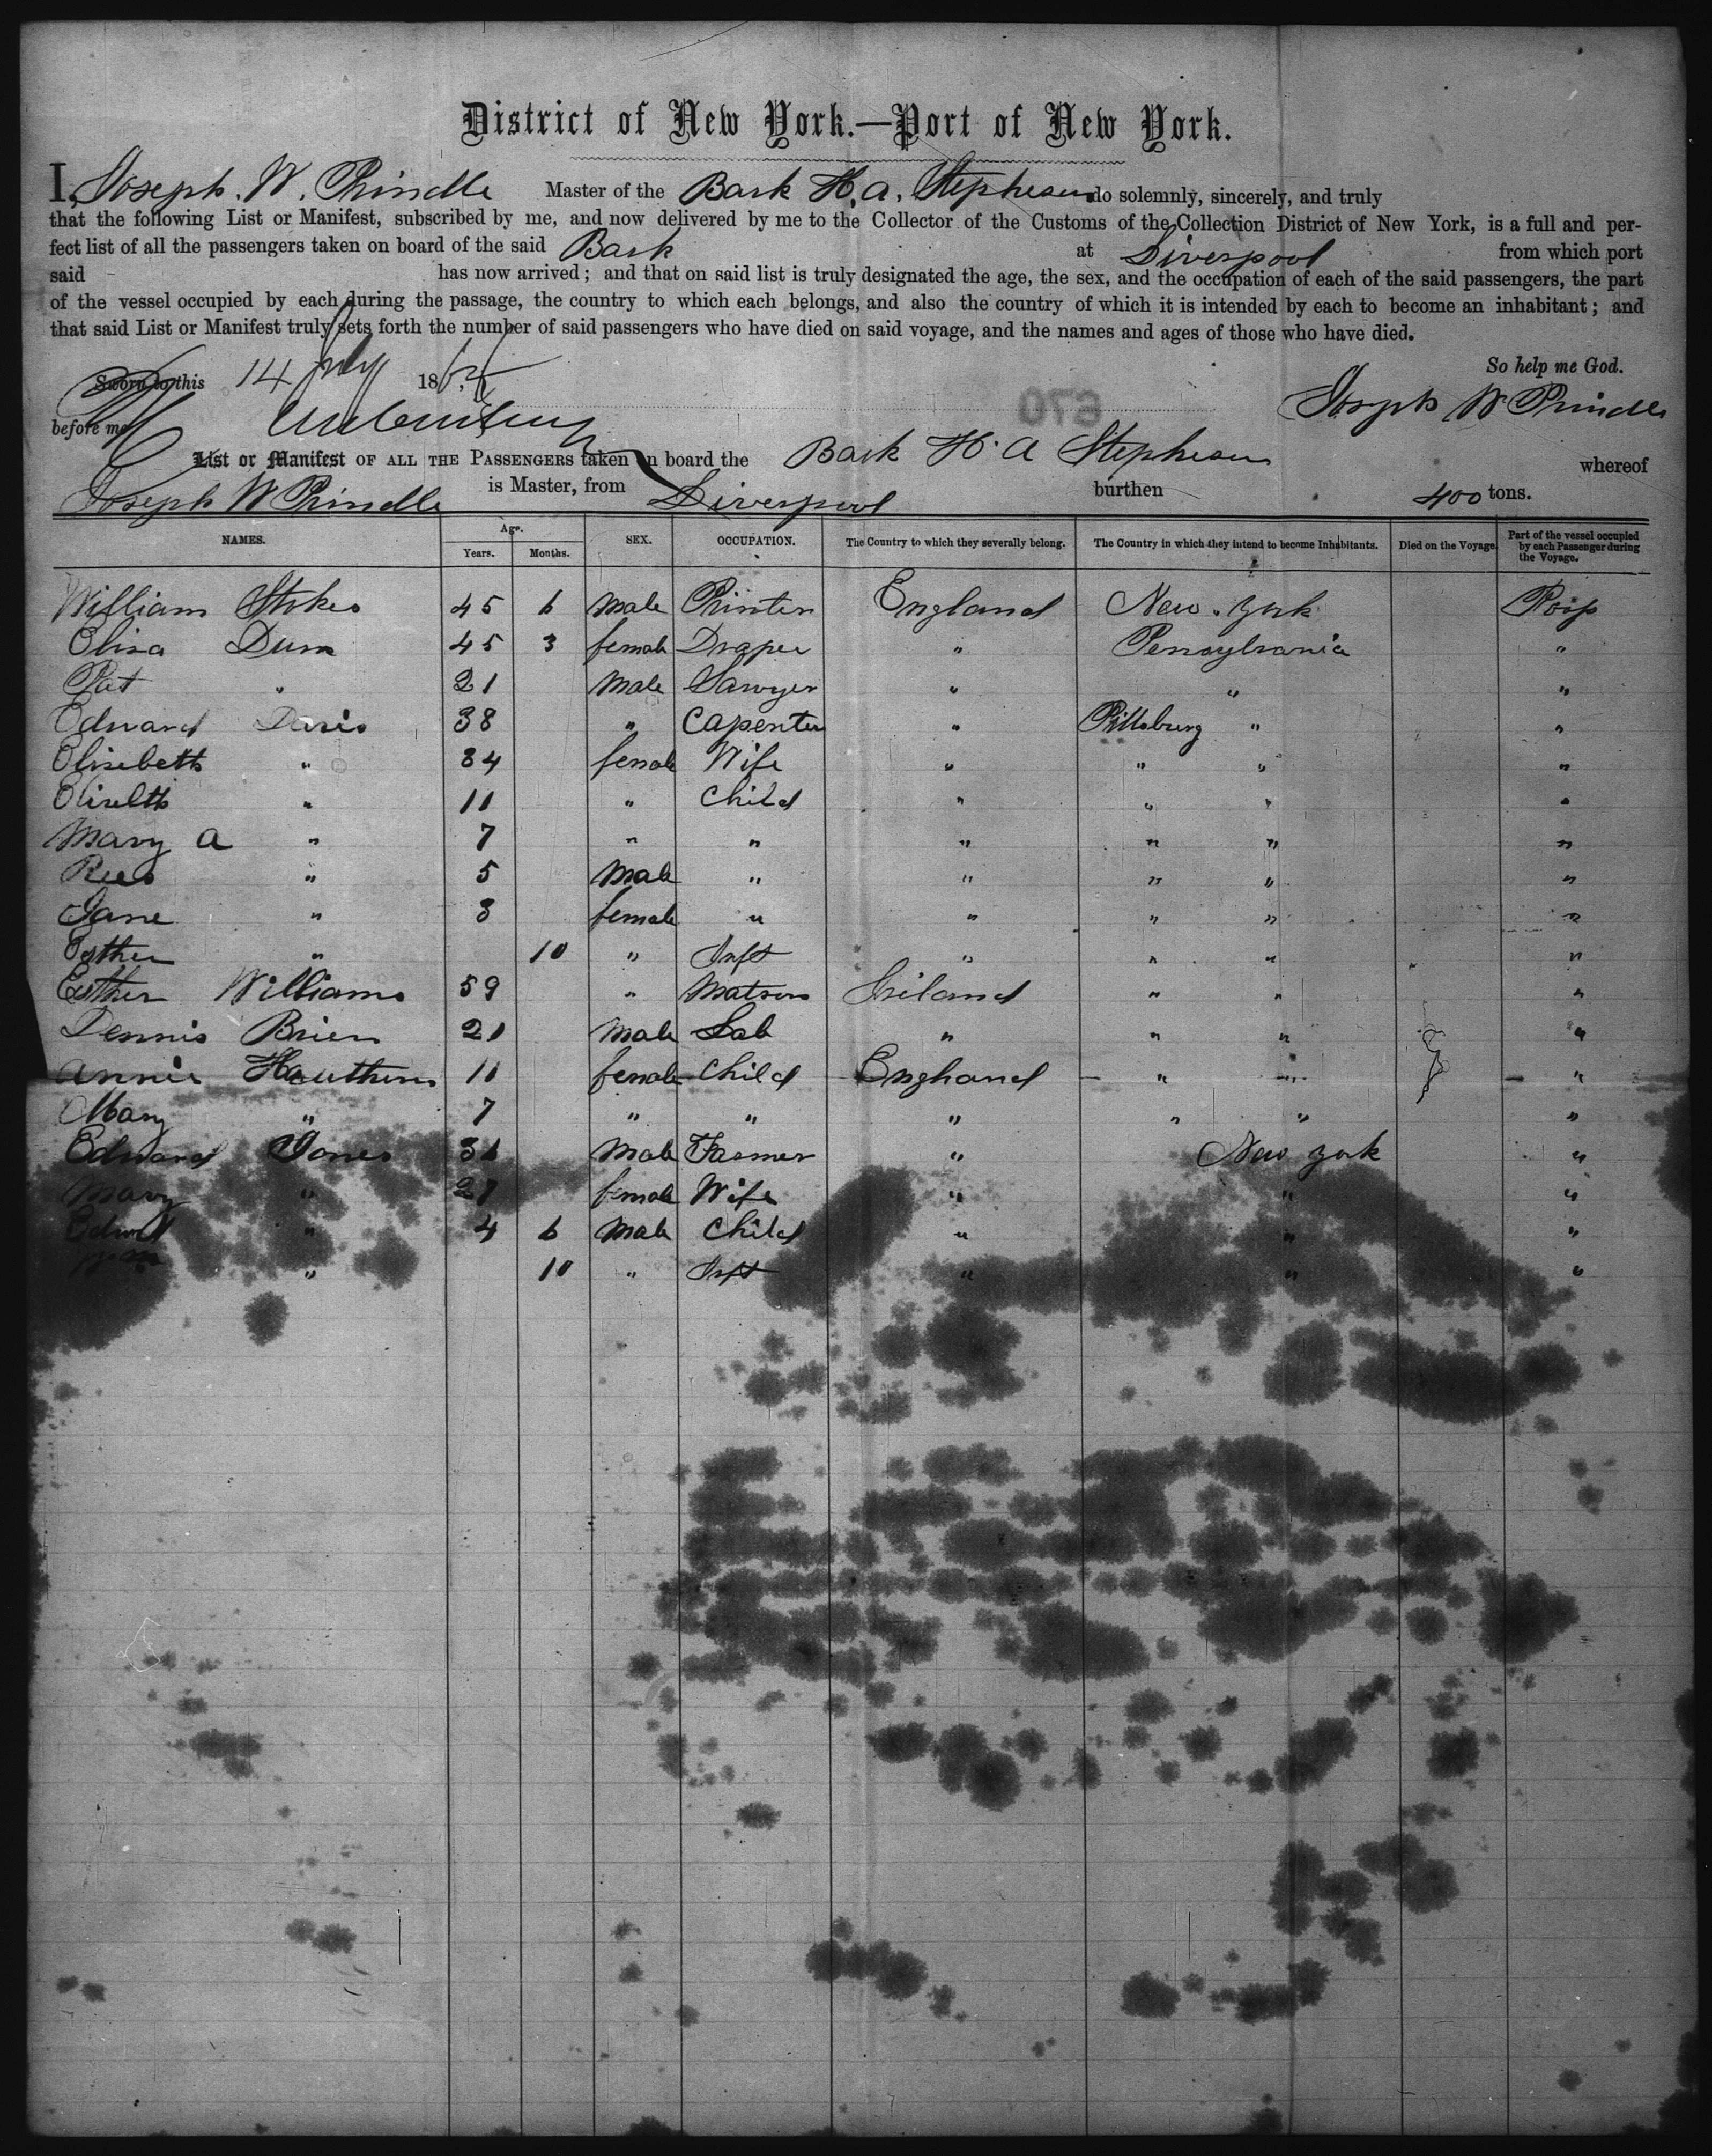 District of New York.—Port of New York.
I, Joseph. W. Prindle Master of the Bark H. A. Stephens do solemnly, sincerely, and truly
that the following List or Manifest, subscribed by me, and now delivered by me to the Collector of the Customs of the Collection District of New York, is a full and per-
fect list of all the passengers taken on board of the said Bark at Liverpool from which port
said has now arrived; and that on said list is truly designated the age, the sex, and the occupation of each of the said passengers, the part
of the vessel occupied by each during the passage, the country to which each belongs, and also the country of which it is intended by each to become an inhabitant; and
that said List or Manifest truly sets forth the number of said passengers who have died on said voyage, and the names and ages of those who have died.
So help me God.
Sworn to this 14 July 186
Joseph W Prindle
before me
List or Manifest OF ALL THE PASSENGERS taken on board the Bark H. A Stephens whereof
Joseph W Prindle is Master, from Liverpool burthen 400 tons.
NAMES. Age. Years. Months. SEX. OCCUPATION. The Country to which they severally belong. The Country in which they intend to become Inhabitants. Died on the Voyage. Part of the vessel occupied by each Passenger during the Voyage.
William Stokes 45 6 male Printer England New York Poop
Elisa Dunn 45 3 female Draper " Pensylvania "
Pat " 21 male Sawyer " " "
Edward Davis 38 " Capenter " Pittsburg " "
Elisebeth " 34 female Wife " " " "
" 11 " Child " " " "
Mary A " 7 " " " " " "
Rees " 5 male " " " " "
Jane " 3 female " " " " "
Esther " 10 " Inft " " " "
Esther Williams 59 " Matron Ireland " " "
Dennis Brien 21 male Lab " " " "
Annie Hauthorn 11 female Child England " " "
Mary " 7 " " " " " "
Edward Jones 36 male Farmer " New York "
Mary " 27 female Wife " " "
Edwd " 4 6 male Child " " "
" 10 " Inft " " "